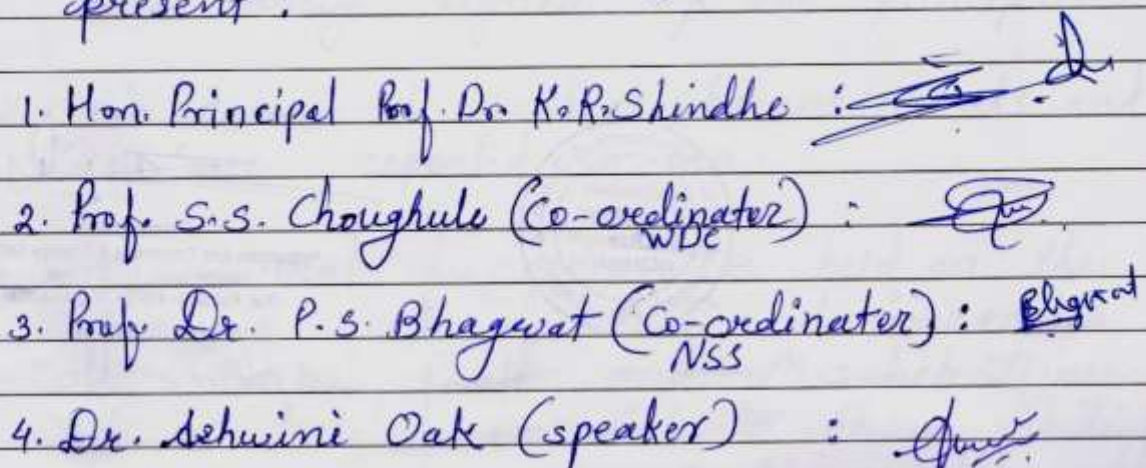 present.
1. Hon. Principal Prof. Dr. K.R. Shindhe :
2. Prof. S.S. Choughule (Co-ordinater) :
WDC
3. Prof. Dr. P.S. Bhagwat (Co-ordinater) : Bhgwat
NSS
4. Dr. Ashwini Oak (speaker) :